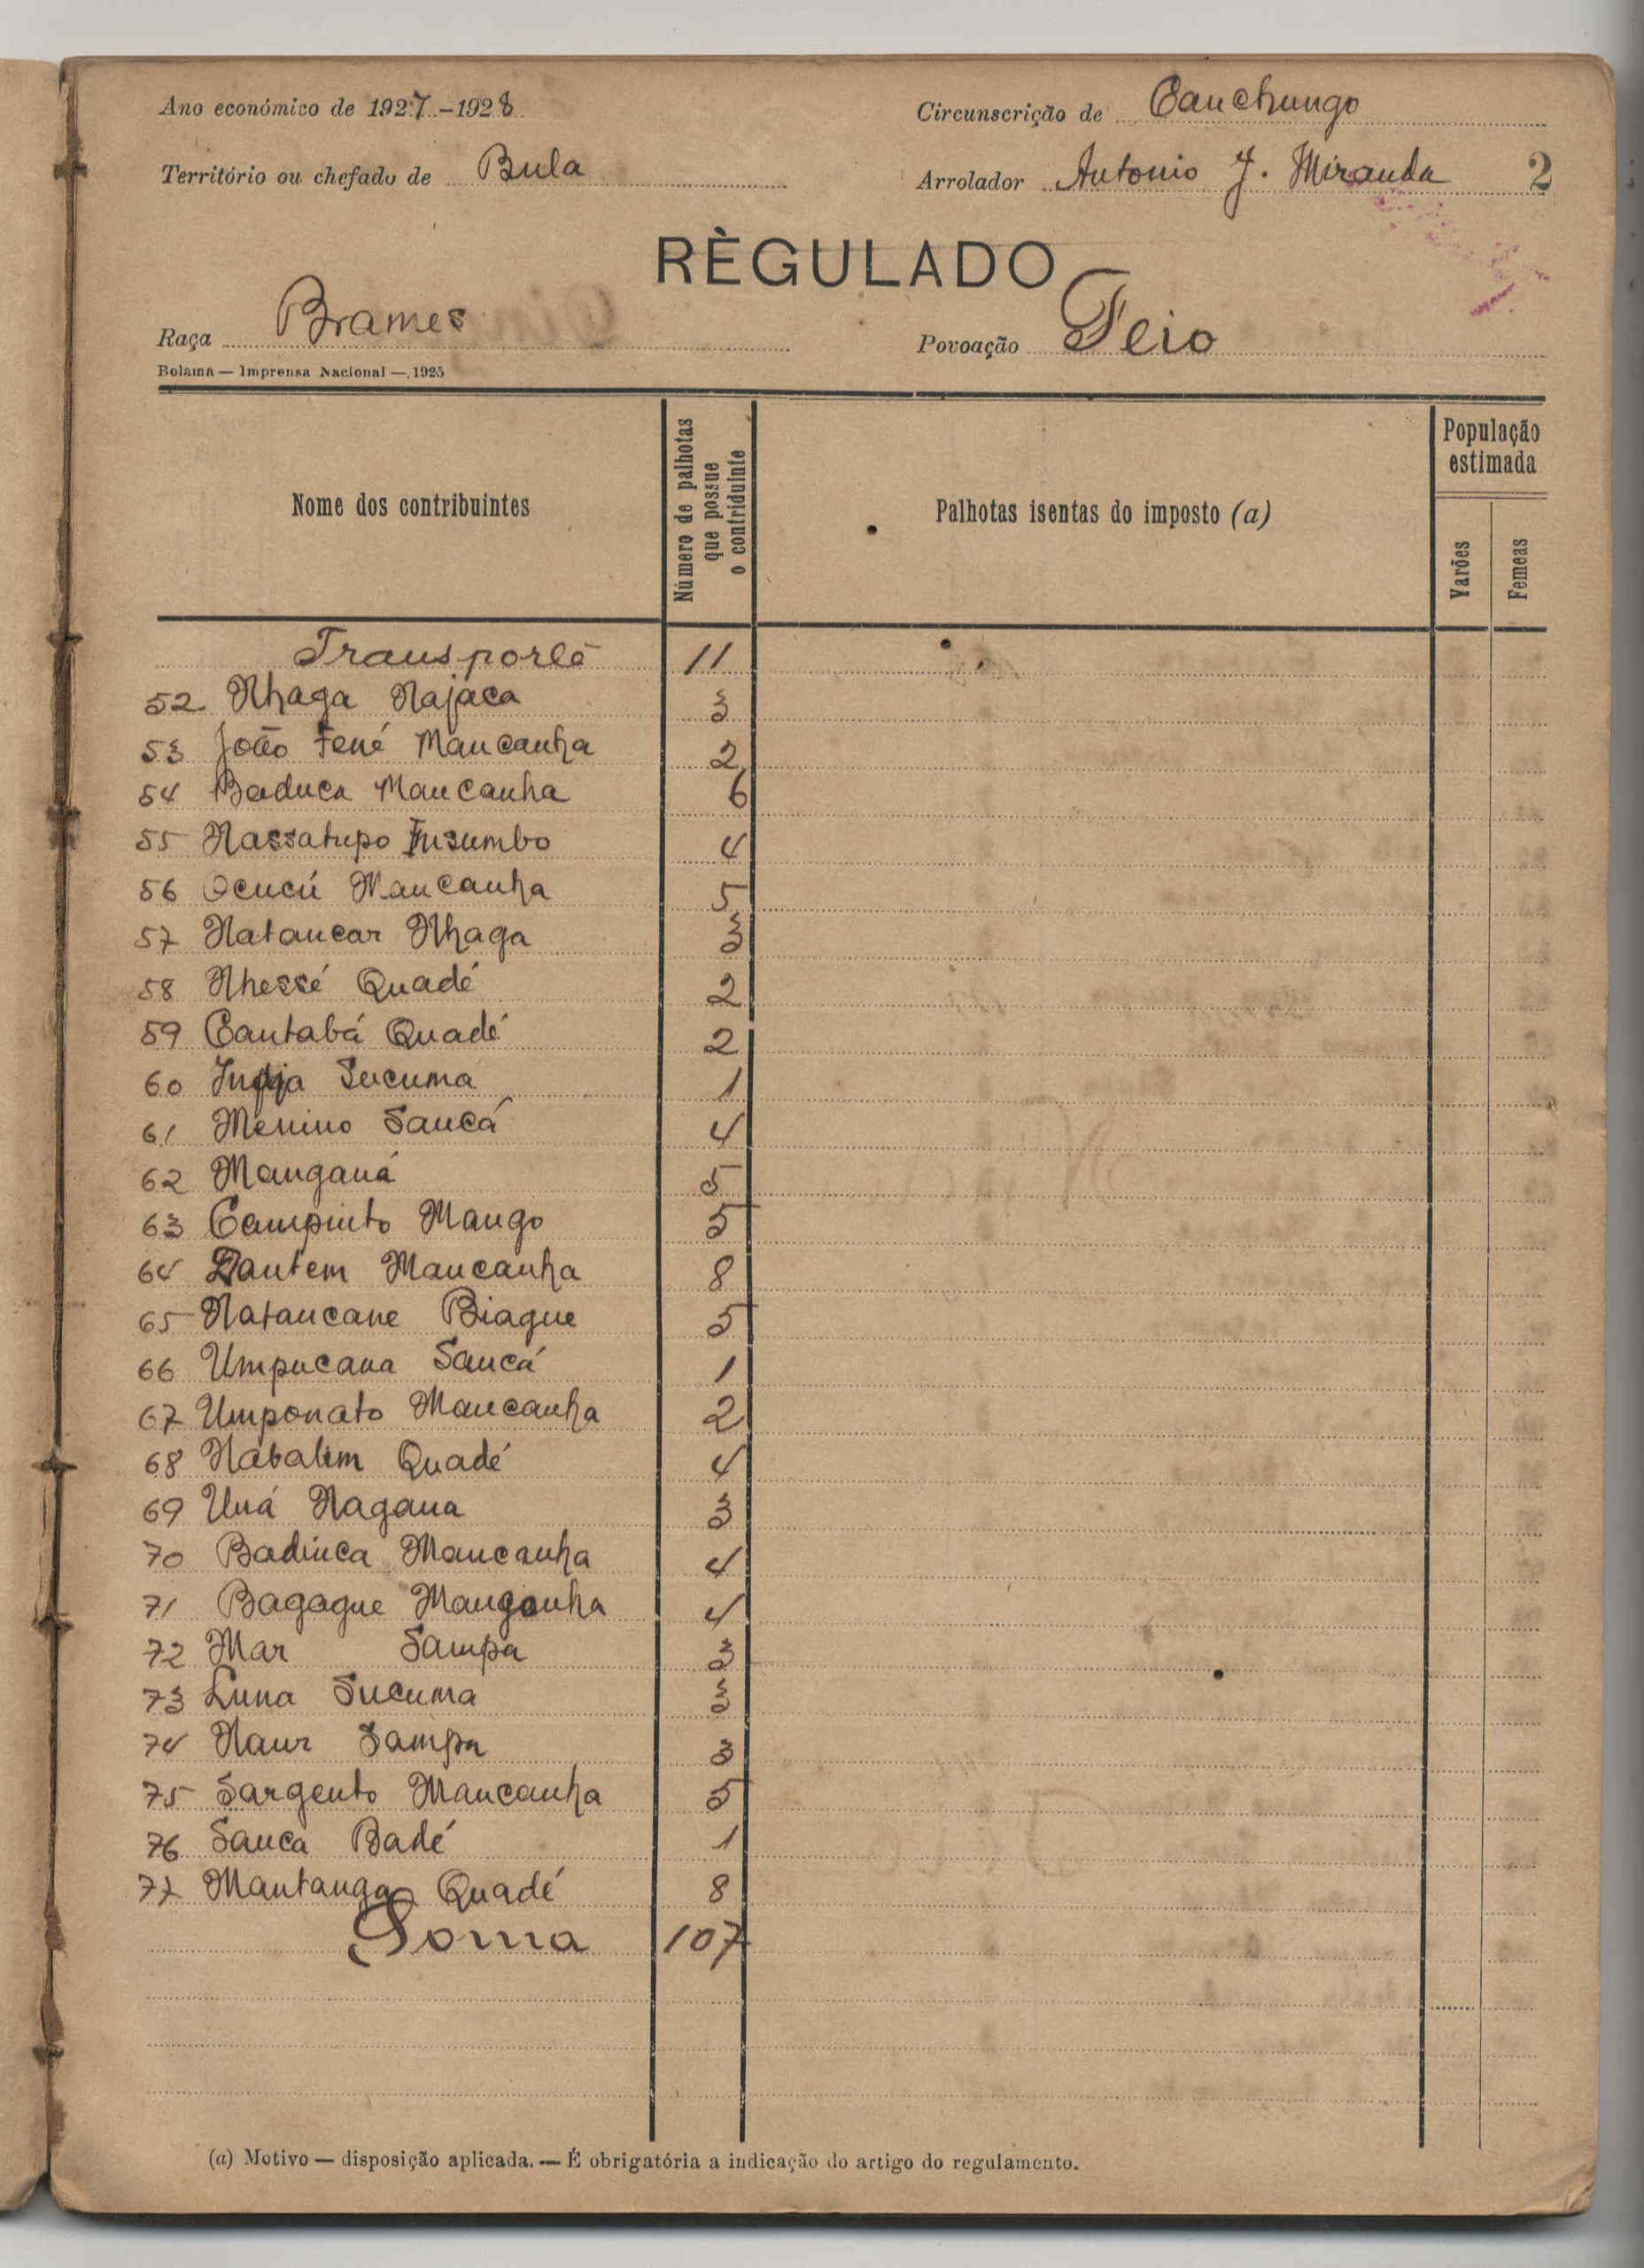 Ano económico de 1927-1928
Circunscrição de Canchungo
Território ou chefado de Bula
Arrolador Antonio J. Miranda 2
RÈGULADO
Raça Brames
Povoação Teio
Bolama — Imprensa Nacional — 1925
Nome dos contribuintes
Número de palhotas que possue o contriduinte
Palhotas isentas do imposto (a)
População estimada
Varões
Femeas
Transporte 11
52 Nhaga Najáca 3
53 João Fené Mancanha 2
54 Baduca Mancanha 6
55 Nassatupo Insumbo 4
56 Ocucú Mancanha 5
57 Natancar Nhaga 3
58 Nhessé Quadé 2
59 Cantabá Quadé 2
60 Sucuma 1
61 Menino Saucá 4
62 Manganá 5
63 Campinto Mango 5
64 Dantem Mancanha 8
65 Natancane Biague 5
66 Umpucana Saucá 1
67 Umponato Mancanha 2
68 Nabalim Quadé 4
69 Uná Nagana 3
70 Badinca Mancanha 4
71 Bagague Manganha 4
72 Mar Sampa 3
73 Luna Sucuma 3
74 Naur Sampa 3
75 Sargento Mancanha 5
76 Sauca Badé 1
77 Mantanga Quadé 8
Soma 107
(a) Motivo — disposição aplicada. — É obrigatória a indicação do artigo do regulamento.